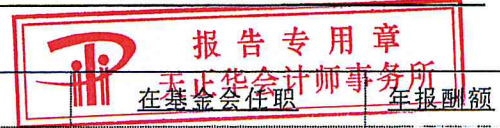 报告专用章
天正华会计师事务所
在基金会任职 年报酬额